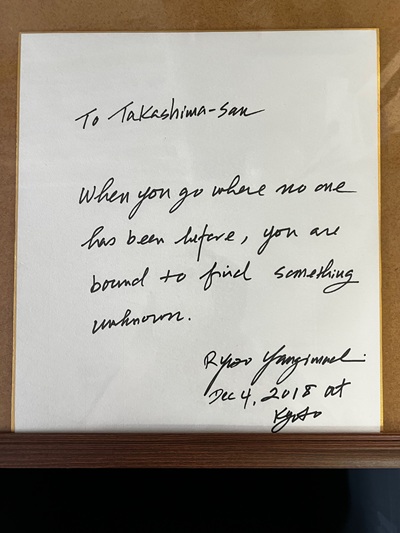 To Takashima-san
When you go where no one
has been before, you are
bound to find something
unknown.
Ryuzo Yanagimachi
Dec 4, 2018 at
Kyoto